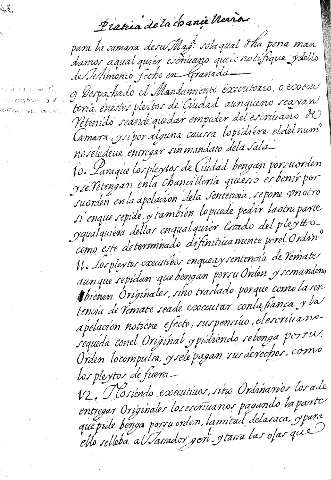 Pratica de la Chancilleria
para la camara de su Mag.d sola qual dha pena man
damos a qualquier escriuano que os notifique, y de llo
de testimonio fecho en Granada
9 Despachado el Mandamiento executorio, o execu
toria, en estos pleitos de Ciudad aunque no se ayan
Retenido se an de quedar en poder del escriuano de
Camara, y si por alguna caussa lo pidiere el del num.o
no se le deue, entregar sin mandato de la Sala.
10. Para que los pleytos de Ciudad bengan por su orden
y se Retengan en la Chancilleria que esso es benir por
su orden en la apelacion de la Sentencia, se pone un otro
si en que se pide, y tambien lo puede pedir la otra parte
y qualquiera dellas en qualquier estado del pleytto
como este determinado definitiuamente por el Orden.o
11. Los pleytos executibos en que ay sentencia de Remate
aunque se pidan que bengan por su Orden, y se mandan no
bienen Originales, sino traslado porque como la sen
tencia de Remate se a de executar con la fiança, y la
apelacion no tiene efecto, suspensiuo, el escriuano
se queda con el Original y pidiendo se benga por su
Orden lo compulsa, y se le pagan sus derechos, como
los pleytos de fuera.
12. No siendo, executiuos, sino Ordinarios los a de
entregar Originales los escriuanos pagando la parte
que pide benga por su orden, la mitad de la saca, y para
ello se lleba al Tasador general y tasa las ojas que